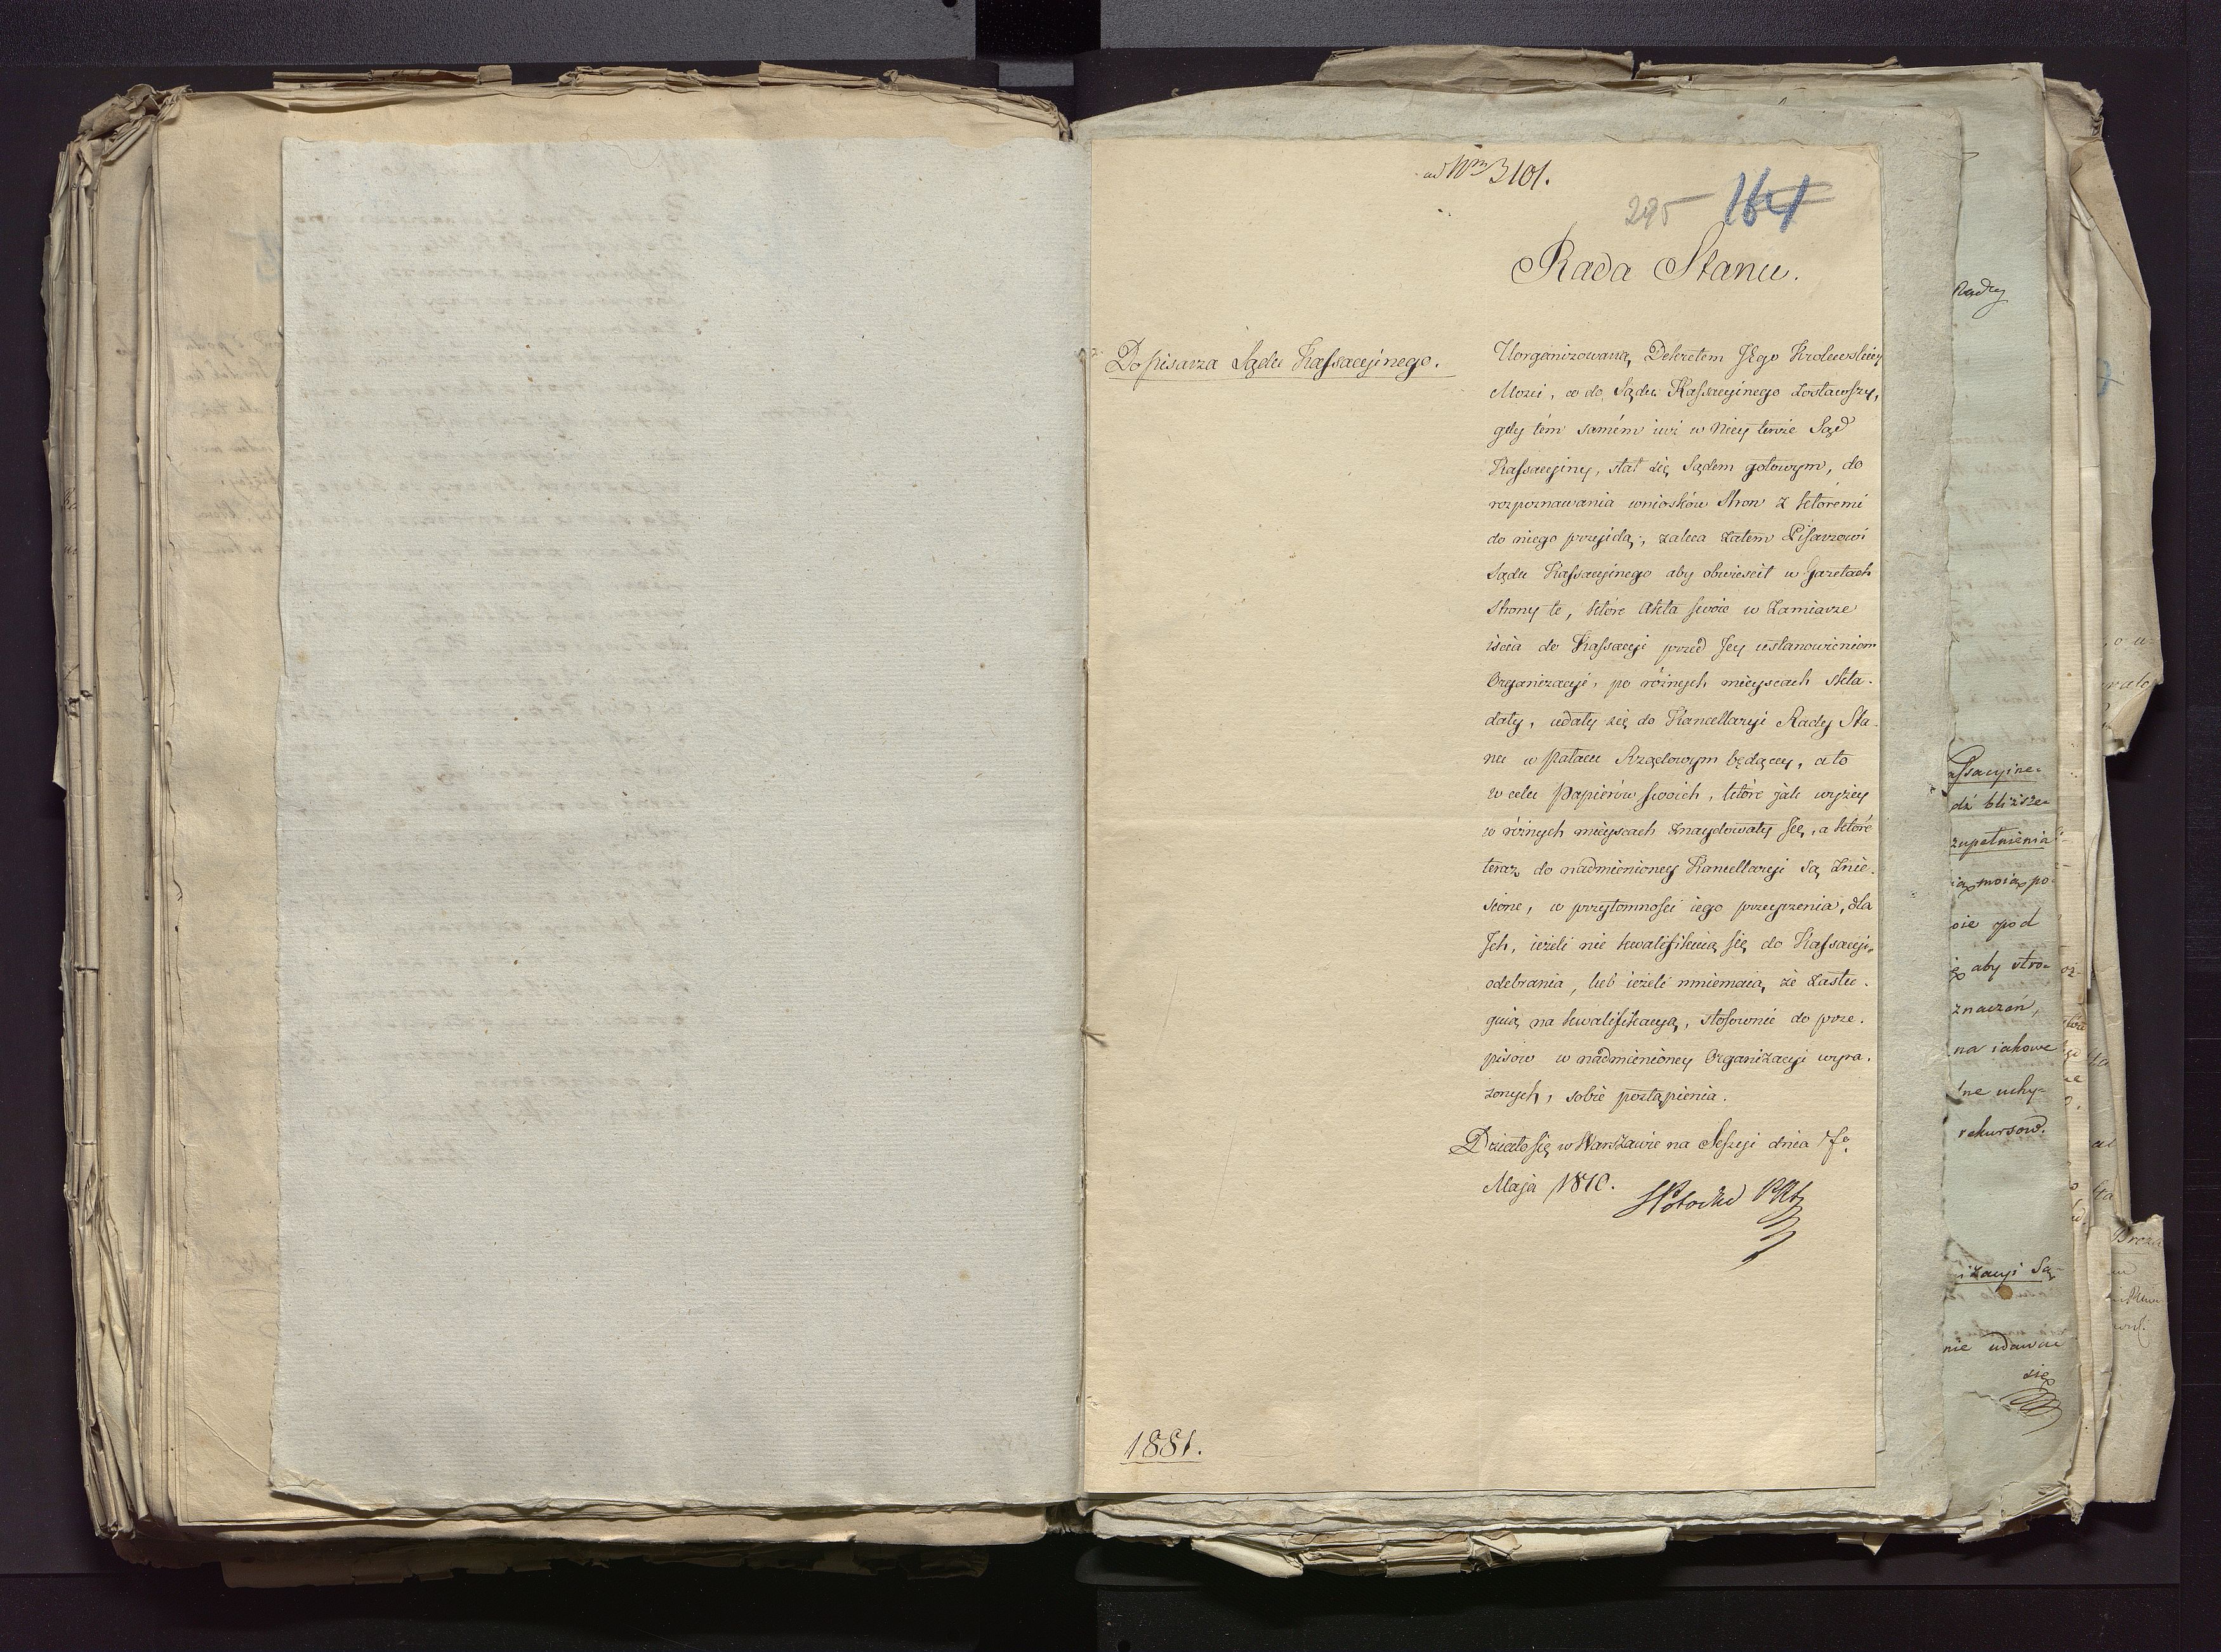 ad Nrm 3101.
295 164
Rada Stanu.
Do Pisarza Sądu Kassacyjnego.
Uorganizowaną Dekretem JEgo Krolewskiey
Mości, co do Sądu Kassacyjnego zostawszy,
gdy tém samém iuż w Niey tenże Sąd
Kassacyjny, stał się Sądem gotowym, do
rozpoznawania wniosków Stron z któremi
do niego przyidą, zaleca zatem Pisarzowi
Sądu Kassacyjnego aby obwieścił w Gazetach
Strony te, które Akta swoie w Zamiarze
iścia do Kassacyi przed Jey ustanowieniem
Organizacyi, po różnych mieyscach skła-
dały, udały się do Kancellaryi Rady Sta-
nu w Pałacu Rządowym będącey, a to
w celu Papierów swoich, które jak wyżey
w różnych mieyscach znaydowały się, a które
teraz do nadmienioney Kancellaryi są znie-
sione, w przytomności iego przeyrzenia, dla
Jch, ieżeli nie kwalifikuią się do Kassacyi
odebrania, lub ieżeli mniemaią, że zasłu-
guią na kwalifikacyą, stosownie do prze-
pisow w nadmienioney Organizacyi wyra-
żonych, sobie postąpienia.
Działo się w Warszawie na Sessyi dnia
Maja 1810.
SPotocki
1881.
Rady
assacyine-
dź bliższe-
zupełnienia
ią moią po-
oie pod
aby stro-
znaczeń,
na iakowe
ne uchy-
rekursow.
izacyi Są-
nie udawać
się